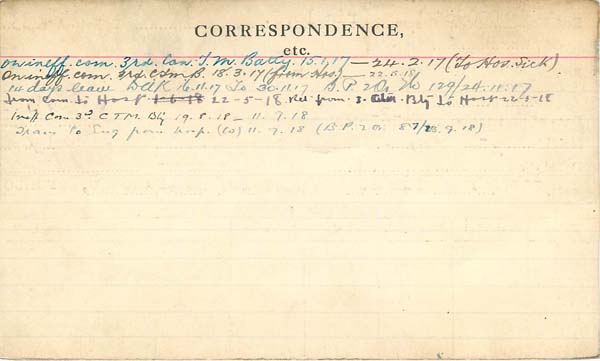 CORRESPONDENCE,
etc.
On ineff. com. 3rd. Can. T. M. Batty. 15.1.17 — 24.2.17 (To Hos. Sick)
On ineff. com. 3rd. C.T.M.B. 18.3.17 (from Hos.) — 22.5.18
14 days leave 16.11.17 To 30.11.17 B.P. 2 129/24.11.17
from Com. to Hosp 22-5-18 from 3. Bty to Hosp 22-5-18
Ineff Com 3rd C.T.M. Bty 19.5.18 — 11.7.18
Trans to Eng from hosp. 11.7.18 (B.P. 2 87/23.7.18)